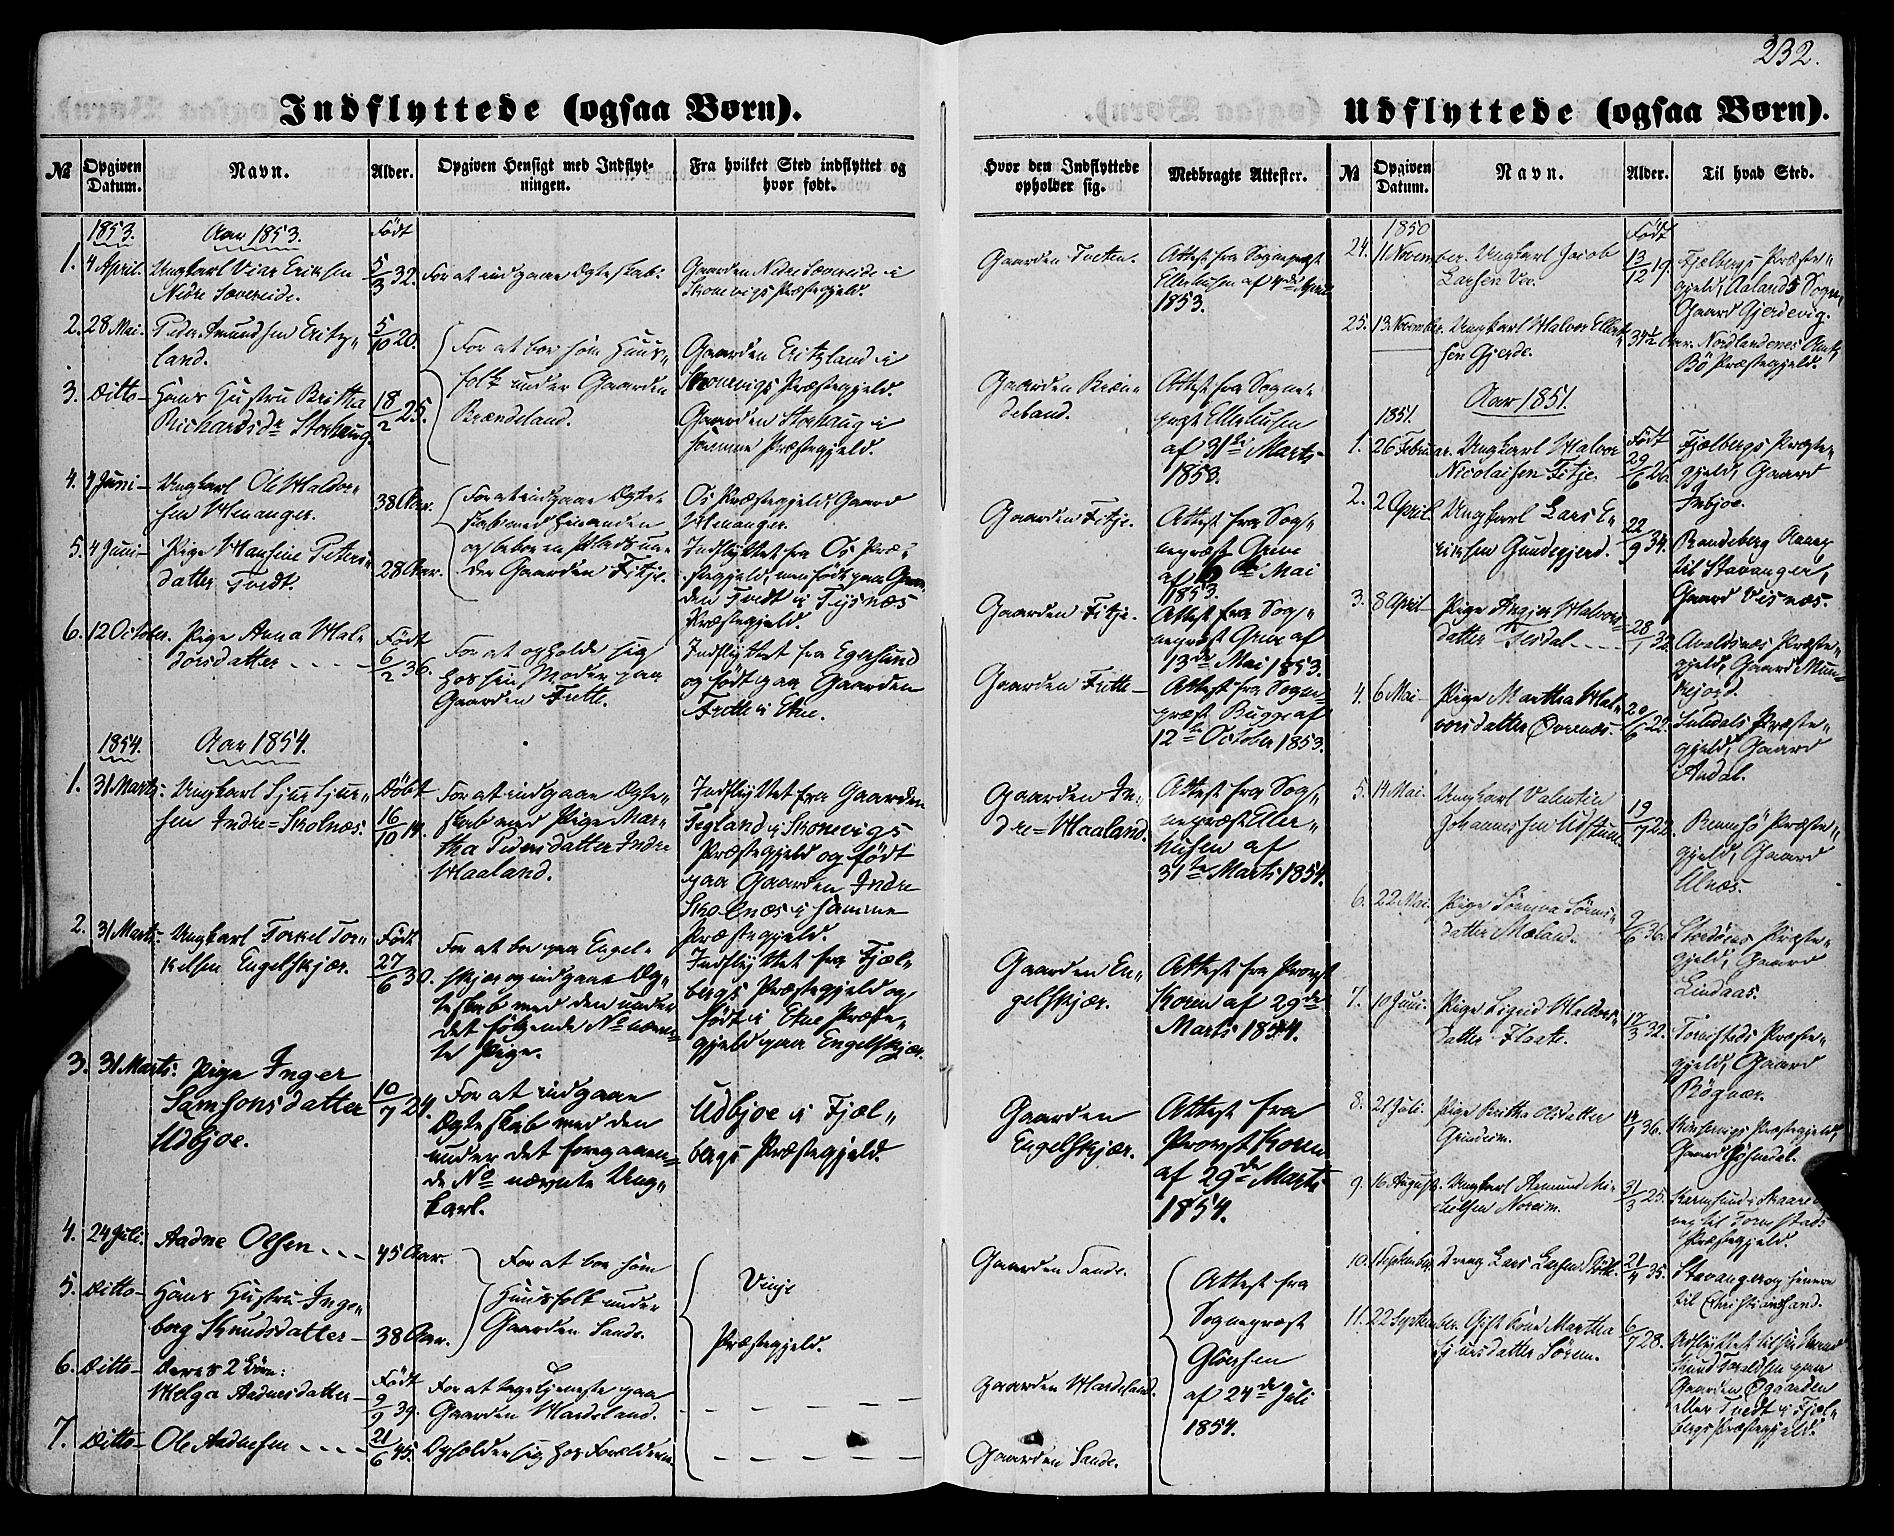 232.
Indflyttede (ogsaa Børn).
№
Opgiven Datum.
Navn.
Alder.
Opgiven Hensigt med Indflyt-
ningen.
Fra hvilket Sted indflyttet og
hvor født.
Hvor den Indflyttede
opholder sig.
Medbragte Attester.
1853.
Aar 1853.
Født
1. 4 April. Ungkarl
Eriksen
Nedre
5/3 32.
For at indgaae Ægteskab.
Gaarden Nedre
i
Skonevigs Præstegjeld.
Gaarden Tveten.
Attest fra Sognepræst
Ellerhusen af 4de April
1853.
2. 28 Mai. Peder Amundsen
land.
5/10 20.
For at boe som Huus-
folk under Gaarden
Brændeland.
Gaarden
i
Skonevigs Præstegjeld.
Gaarden Bræn-
deland.
Attest fra Sogne-
præst Ellerhusen
af 31te Marts
1853.
3. Ditto- Hans Hustru Britha
Richardsdr Storhaug.
18/2 25.
Gaarden Storhaug i
samme Præstegjeld.
4. 4 Juni- Ungkarl Ole Haldor-
sen
38 Aar.
For at indgaae Ægte-
skab med hinanden
og beboe en Plads un-
der Gaarden Fitje.
Os Præstegjeld, Gaard
Gaarden Fitje.
Attest fra Sog-
nepræst
af
Mai
1853.
5. 4 Juni- Pige Hansine Peters-
datter Tvedt.
28 Aar.
Indflyttet fra Os Præ-
stegjeld, men født paa Gaar-
den Tvedt i Tysnæs
Præstegjeld.
Gaarden Fitje.
Attest fra Sog-
nepræst
af
13de Mai 1853.
6. 12 October. Pige Anna Hal-
dorsdatter - - - -
Født
6/2 36.
For at opholde sig
hos sin Moder paa
Gaarden Frette.
Indflyttet fra Egersund
og født paa Gaarden
Frette i Etne.
Gaarden Frette -
Attest fra Sogne-
præst Bugge af
12te October 1853.
1854.
Aar 1854.
1. 31 Marts. Ungkarl Sjur Sjur-
sen Indre=Skolnæs.
Døbt
16/10 14.
For at indgaae Ægte-
skab med Pige Mar-
tha Pedersdatter Indre
Haaland.
Indflyttet fra Gaarden
Tegland i Skonevigs
Præstegjeld og født
paa Gaarden Indre
Skolnæs i samme
Præstegjeld.
Gaarden In-
dre=Haaland.
Attest fra Sog-
nepræst Eller-
husen af
31te Marts 1854.
2. 31 Marts. Ungkarl Torkel Tor-
kelsen Engelskjær.
Født
27/6 30.
For at boe paa Engel-
skjær og indgaae Æg-
teskab med den under
det følgende No nævn-
te Pige.
Indflyttet fra Fjæl-
bergs Præstegjeld og
født i Etne Præste-
gjeld paa Engelskjær.
Gaarden En-
gelskjær.
Attest fra Provst
Koren af 29de
Marts 1854.
3. 31 Marts: Pige Inger
Samsonsdatter
Udbjoe.
10/7 24.
For at indgaae
Ægteskab med den
under det foregaaen-
de No nævnte Ung-
karl.
Udbjoe i Fjæl-
bergs Præstegjeld.
Gaarden
Engelskjær.
Attest fra
Provst Koren
af 29de Marts
1854.
4. 24 Juli. Aadne Olsen - - -
45 Aar.
For at boe som
Huusfolk under
Gaarden Sande.
Vinje
Præstegjeld.
Gaarden Sande.
Attest fra
Sognepræst
af 24de Juli
1854.
5. Ditto- Hans Hustru Inge-
borg Knudsdatter -
38 Aar.
6. Ditto- Deres 2 Børn:
Helga Aadnesdatter -
Født
9/9 39.
For at tage tjeneste paa
Gaarden Hardeland.
Gaarden Hardeland.
7. Ditto- Ole Aadnesen - - - -
21/6 45.
Opholder sig hos Forældrene.
Gaarden Sande.
Udflyttede (ogsaa Børn).
№
Opgiven Datum.
Navn.
Alder.
Til hvad Sted.
1850
Født
24. 11 November. Ungkarl Jacob
Larsen
13/12 19.
Fjelbergs Præste-
gjeld,
Sogn,
Gaard Gjerdevig.
25. 13 November. Ungkarl Halvor
sen Gjerde.
34½ Aar.
Nordlandenes Amt,
Bö Præstegjeld.
1851.
Aar 1851.
Født
1. 26 Februar. Ungkarl Halvor
Nicolaisen Fitje.
29/6 26.
Fjælbergs Præste-
gjeld, Gaard
2. 2 April. Ungkarl Lars E-
riksen Gundegjerd.
22/9 34.
Randeberg Annex
til Stavanger,
Gaard Visnæs.
3. 8 April- Pige
Halvors-
datter
28/1 32.
Avaldsnæs Præste-
gjeld, Gaard Mun-
kejord.
4. 6 Mai- Pige Martha Hal-
vorsdatter
20/6 22.
Suldals Præste-
gjeld, Gaard
Aadal.
5. 14 Mai. Ungkarl Valentin
Johannessen
19/7 22.
Rennesö Præste-
gjeld, Gaard
6. 22 Mai. Pige
datter Mæland.
9/6 36.
Stordöens Præste-
gjeld, Gaard
Lindaas.
7. 10 Juni. Pige Sigrid Haldors-
datter Flaate.
17/3 32.
Torvestads Præste-
gjeld, Gaard
Bögnær.
8. 21 Juli. Pige Britha Olsdatter
Grindeim.
14/1 36.
Præstegjeld,
Gaard
9. 16 August. Ungkarl Amund Mi-
chelsen Noreim.
31/3 25.
til Torvestads
Præstegjeld.
10. September. Dreng Lars Larsen
21/4 35.
Stavanger og senere
til Christiansand.
11. 22 September. Gift Kone Martha
Sjursdatter Sörem.
6/7 28.
Udflyttet til sin Mand
paa
Gaarden Ögaarden
eller Tvedt i Fjæl-
bergs Præstegjeld.